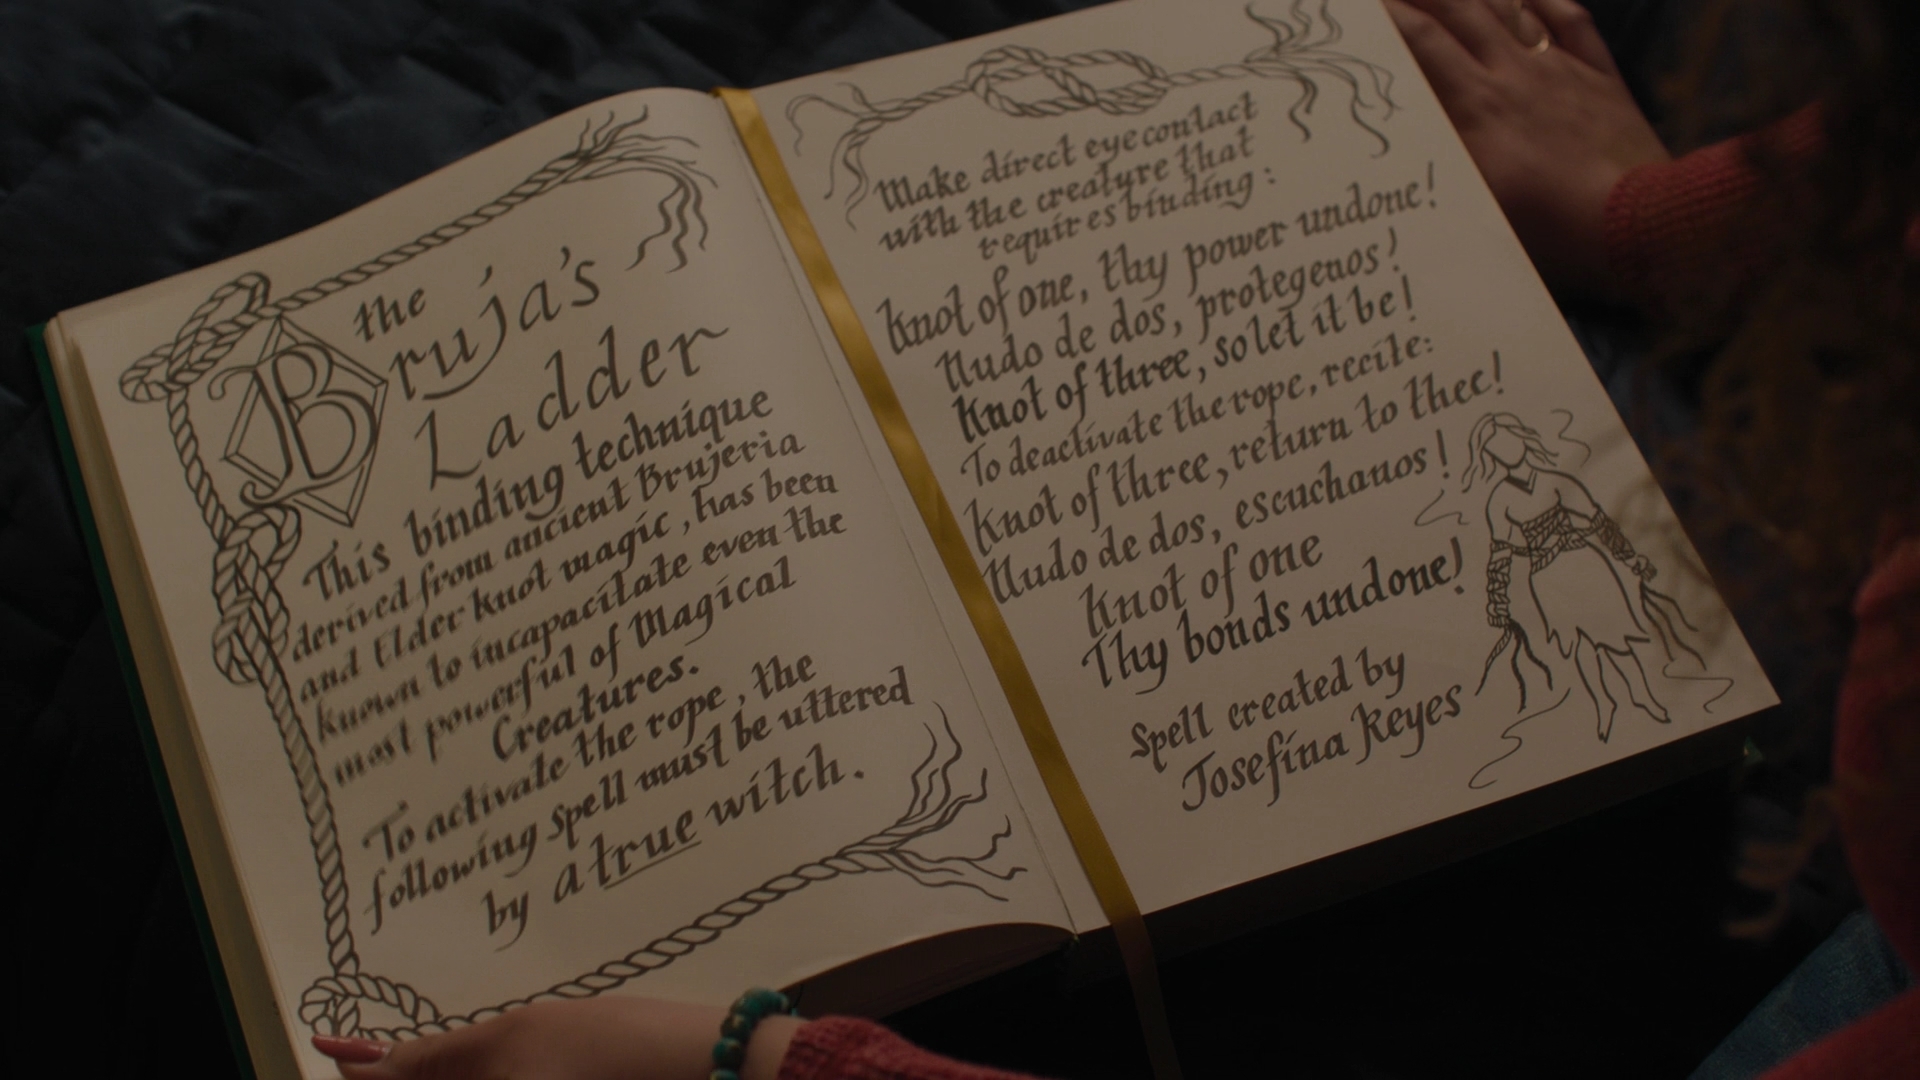 the
Bruja's
Ladder
This binding technique
derived from ancient Brujeria
and Elder knot magic, has been
known to incapacitate even the
most powerful of Magical
Creatures.
To activate the rope, the
following spell must be uttered
by a true witch.
Make direct eye contact
with the creature that
requires binding:
Knot of one, thy power undone!
Nudo de dos, protegenos!
Knot of three, so let it be!
To deactivate the rope, recite:
Knot of three, return to thee!
Nudo de dos, escuchanos!
Knot of one
Thy bonds undone!
Spell created by
Josefina Reyes